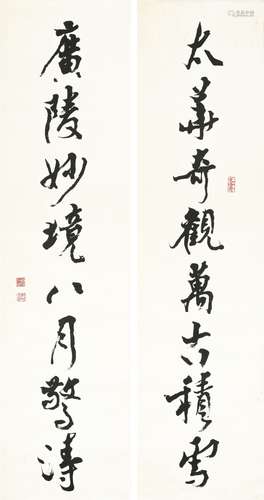 太華奇觀萬古積雪
廣陵妙境八月驚濤